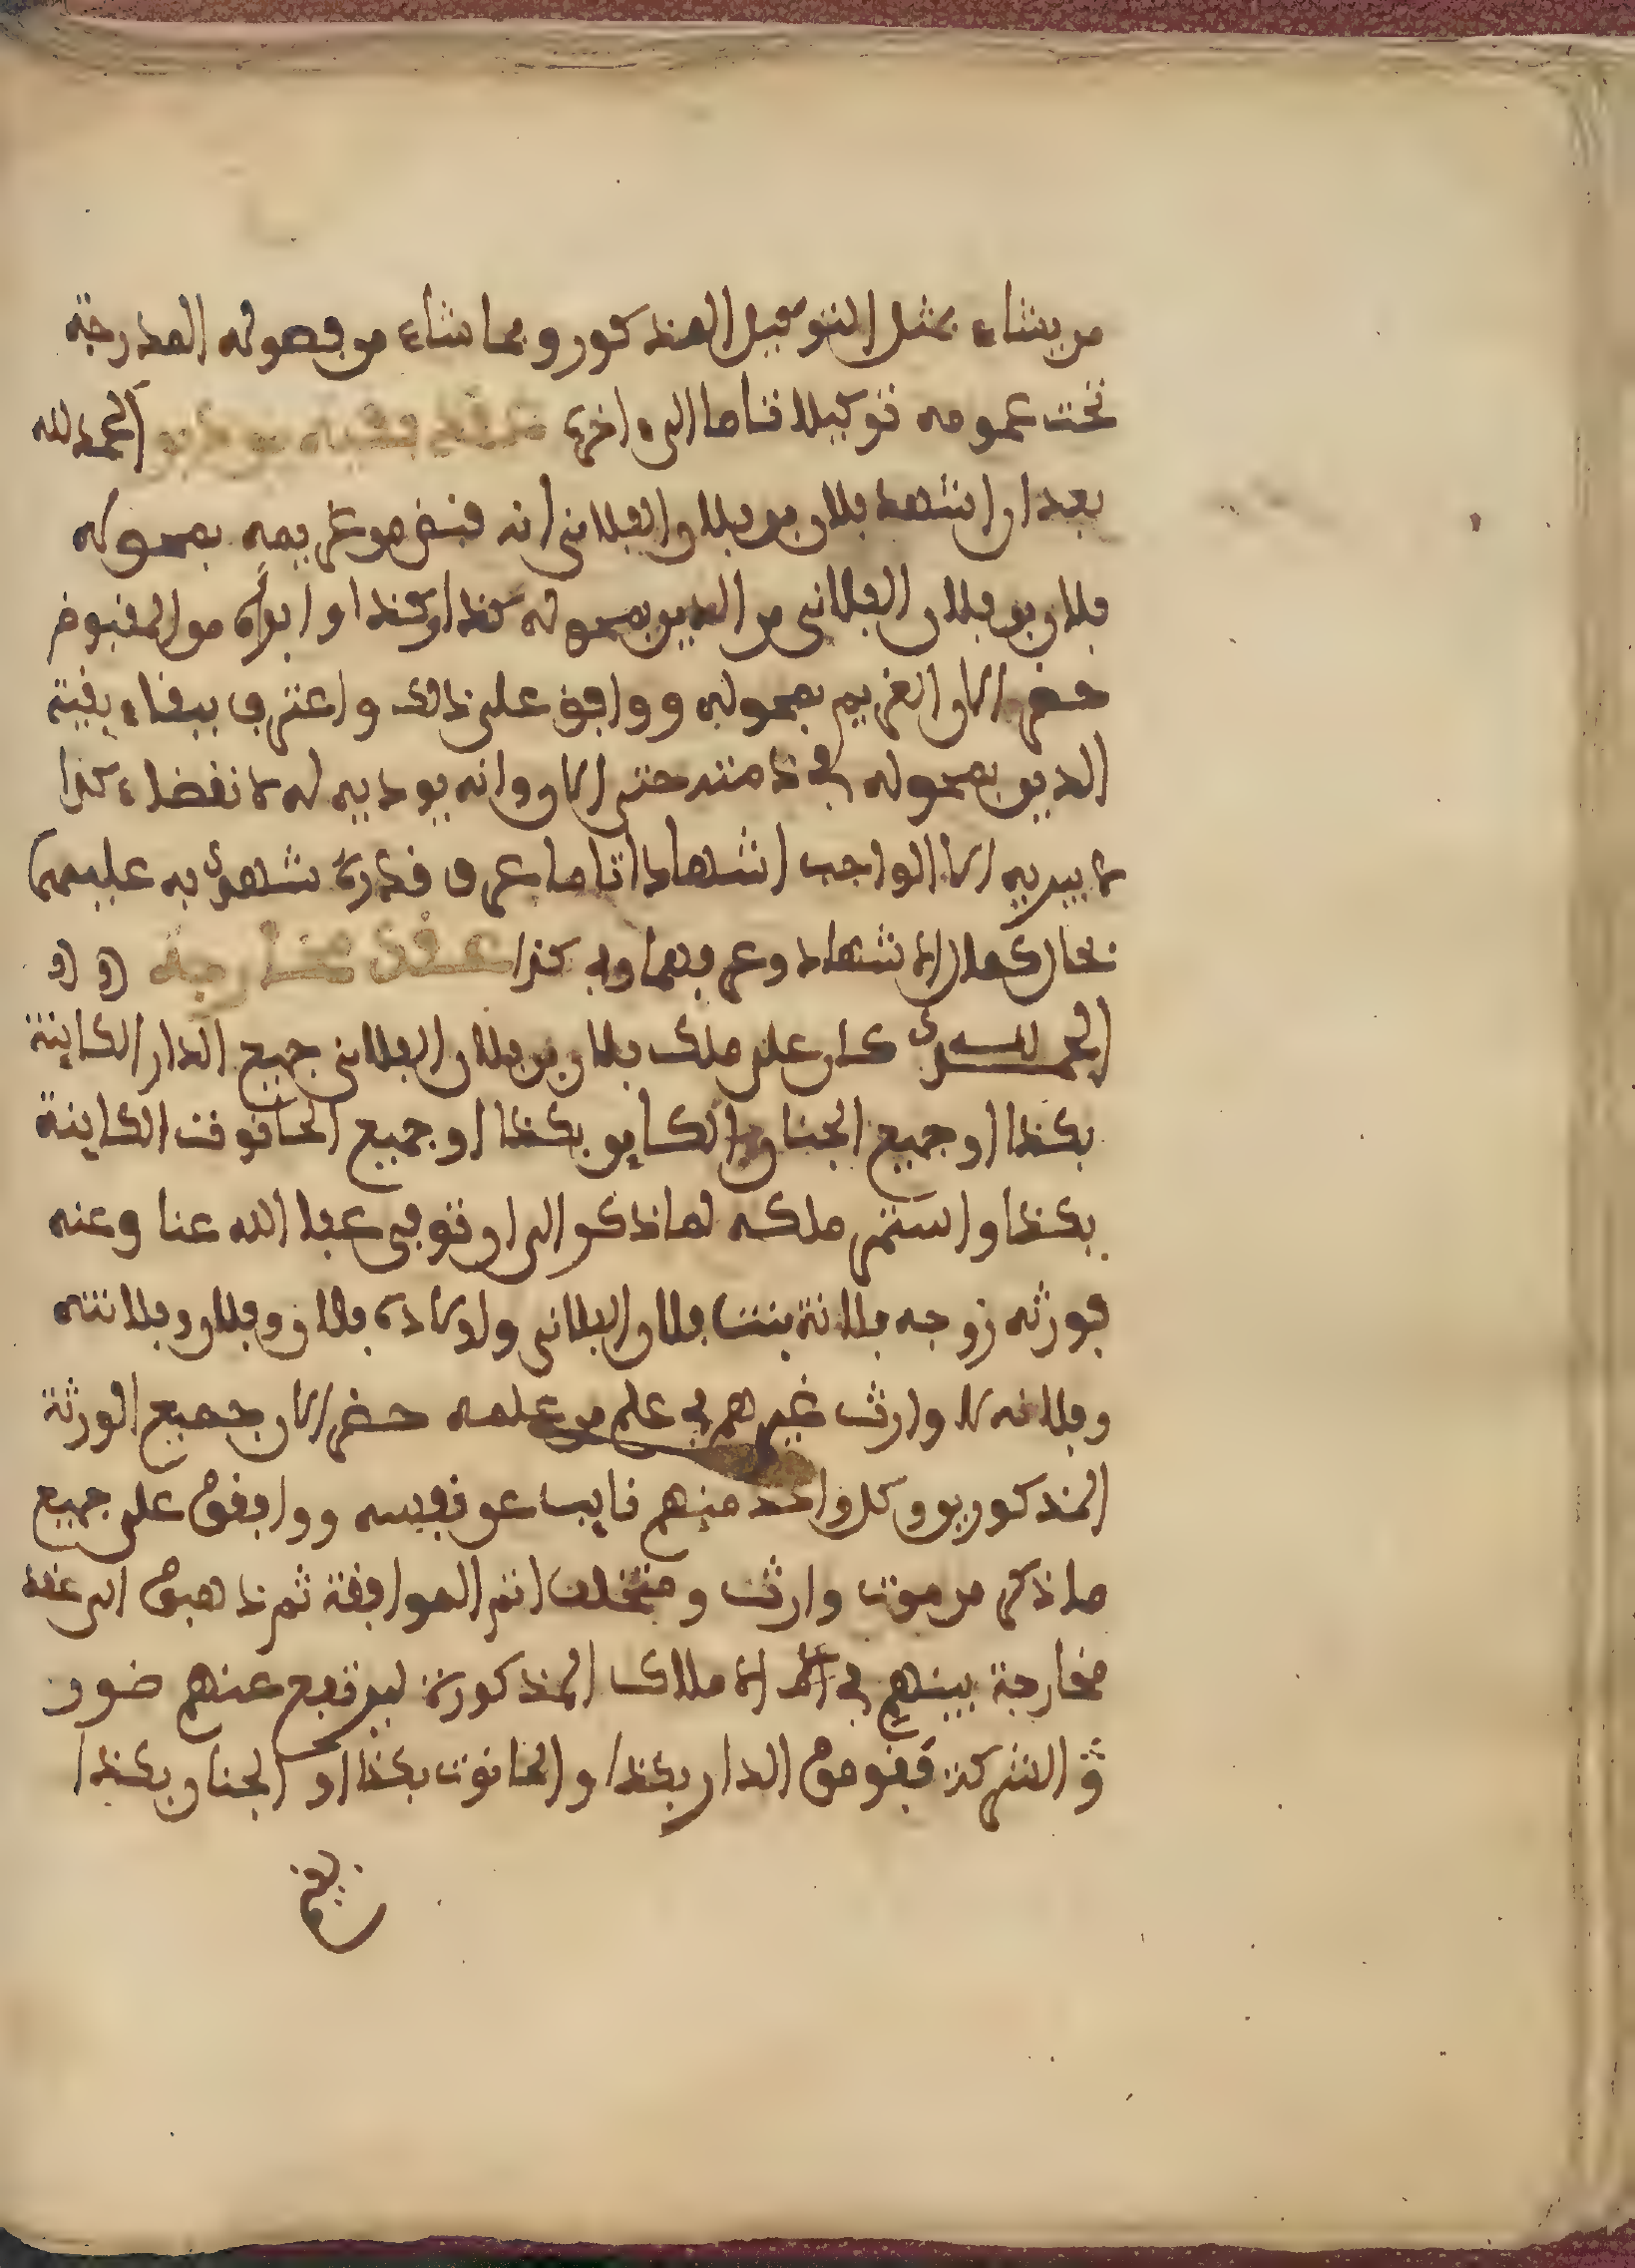 من يشاء بمثل التوكيل المذكور وبما شاء من فصوله المدرجة
تحت عمومه توكيلا تاما الى اخره عقد قبض من دين الحمد لله
بعد ان اشهد فلان بن فلان الفلاني انه قبض من غريمه بمحوله
فلان بن فلان الفلاني من الدين بمحوله كذا وكذا او ابراه من المقبوض
حضر الان الغريم بمحوله ووافق على ذلك واعترف ببقاء بقية
الدين بمحوله في ذمته حتى الان وانه يوديه له لانقضاء كذا
لا يبريه الا الواجب اشهادا تاما عرف قدره شهد به عليهما
بحال كمال الاشهاد وعرفهما وفي كذا عقد مخارجة
الحمد لله كان على ملك فلان بن فلان الفلاني جميع الدار الكاينة
بكذا او جميع الجنان الكاين بكذا او جميع الحانوت الكاينة
بكذا واستمر ملكه لما ذكر الى ان توفي عفا الله عنا وعنه
فورثه زوجه فلانة بنت فلان الفلاني واولاده فلان وفلان وفلانته
وفلانه لا وارث غيرهم في علم من علمه حضر الان جميع الورثة
المذكورين وكل واحد منهم نايب عن نفسه ووافقوا على جميع
ما ذكر من موت وارث ومتخلف اتم الموافقة ثم ذهبوا الى عقد
مخارجة بينهم في الاملاك المذكورة ليرتفع عنهم ضرر
الشركة فقوموا الدار بكذا والحانوت بكذا او الجنان بكذا